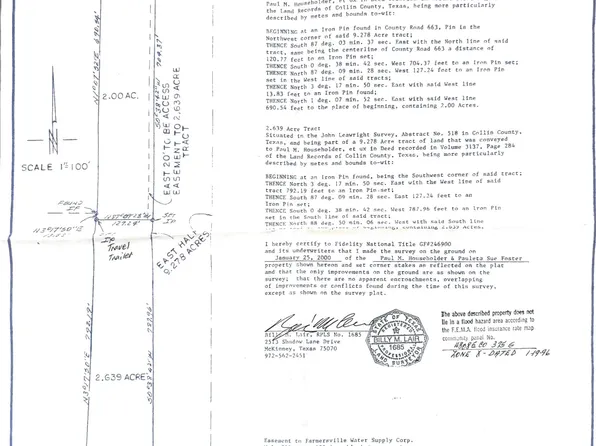 Paul M. Householder, et ux
the Land Records of Collin County, Texas, being more particularly
described by metes and bounds to-wit:
BEGINNING at an Iron Pin found in County Road 663, Pin is the
Northwest corner of said 9.278 Acre tract;
THENCE South 87 deg. 03 min. 37 sec. East with the North line of said
tract, same being the centerline of County Road 663 a distance of
120.77 feet to an Iron Pin set;
THENCE South 0 deg. 38 min. 42 sec. West 704.37 feet to an Iron Pin set;
THENCE North 87 deg. 09 min. 28 sec. West 127.24 feet to an Iron Pin
set in the West line of said tracts;
THENCE North 3 deg. 17 min. 50 sec. East with said West line
13.83 feet to an Iron Pin found;
THENCE North 1 deg. 07 min. 52 sec. East with said West line
690.54 feet to the place of beginning, containing 2.00 Acres.
2.639 Acre Tract
Situated in the John Leawright Survey, Abstract No. 518 in Collin County,
Texas, and being part of a 9.278 Acre tract of land that was conveyed
to Paul M. Householder, et ux in Deed recorded in Volume 3137, Page 284
of the Land Records of Collin County, Texas, being more particularly
described by metes and bounds to-wit:
BEGINNING at an Iron Pin found, being the Southwest corner of said tract;
THENCE North 3 deg. 17 min. 50 sec. East with the West line of said
tract 792.19 feet to an Iron Pin set;
THENCE South 87 deg. 09 min. 28 sec. East 127.24 feet to an
Iron Pin set;
THENCE South 0 deg. 38 min. 42 sec. West 787.96 feet to an Iron Pin
set in the South line of said tract;
THENCE South 88 deg. 50 min. 06 sec. West with said South line
containing 2.639 Acres.
I hereby certify to Fidelity National Title GF#246900
and its underwriters that I made the survey on the ground of
January 25, 2000 of the Paul M. Householder & Pauleta Sue Foster
property shown hereon and set corner stakes as reflected on the plat
and that the only improvements on the ground are as shown on the
survey; that there are no apparent encroachments, overlapping
of improvements or conflicts found during the time of this survey,
except as shown on the survey plat.
Billy M. Lair, RPLS No. 1685
2313 Shadow Lane Drive
McKinney, Texas 75070
972-562-2451
STATE OF TEXAS
REGISTERED
BILLY M. LAIR
1685
PROFESSIONAL
LAND SURVEYOR
The above described property does not
lie in a flood hazard area according to
the F.E.M.A. flood insurance rate map
community panel No.
ZONE X - DATED 1-19-96
Easement to Farmersville Water Supply Corp.
2.00 AC.
SCALE 1"=100'
EAST 20' TO BE ACCESS
EASEMENT TO 2.639 ACRE
TRACT
704.37'
FOUND
IP
SET
IP
127.24'
N3°17'50"E
Travel
Trailer
EAST HALF
9.278 ACRES
2.639 ACRE